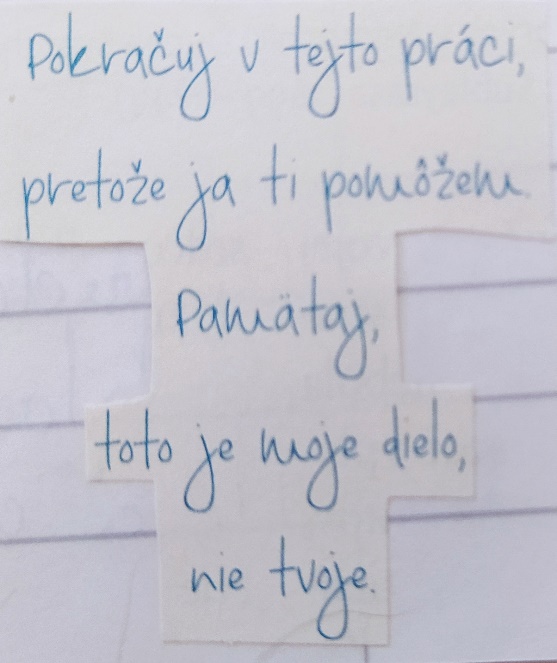 Pokračuj v tejto práci,
pretože ja ti pomôžem.
Pamätaj,
toto je moje dielo,
nie tvoje.